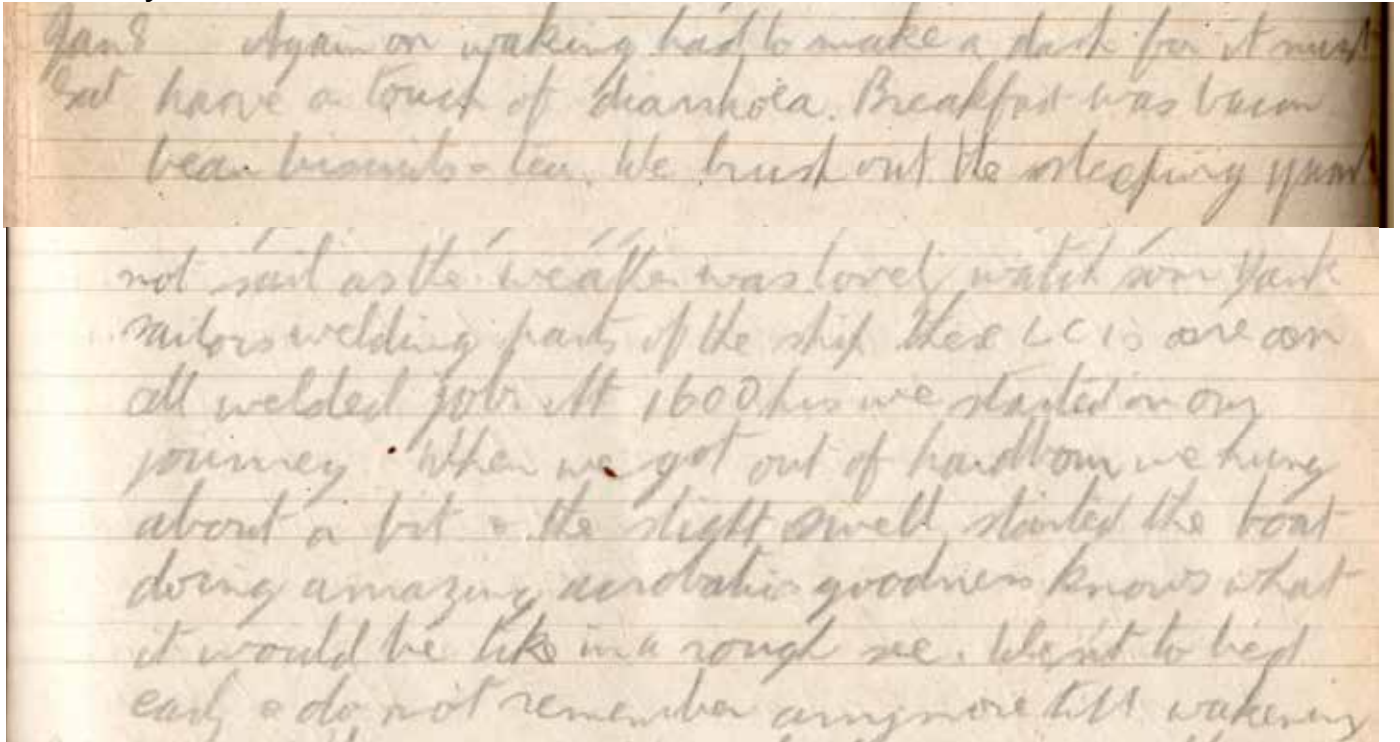 Jan 8 Again on waking had to make a dash for it must
Sat have a touch of diarrhoea. Breakfast was bacon
bean biscuits & tea. We brush out the sleeping
not sail as the weather was lovely watch som Yank
sailors welding parts of the ship these LCIs are an
all welded job. At 1600 hrs we started on our
journey. When we got out of hardbour we hung
about a bit & the slight swell started the boat
doing amazing acrobatics goodness knows what
it would be like in a rough see. Went to bed
early & do not remember anymore till wakening